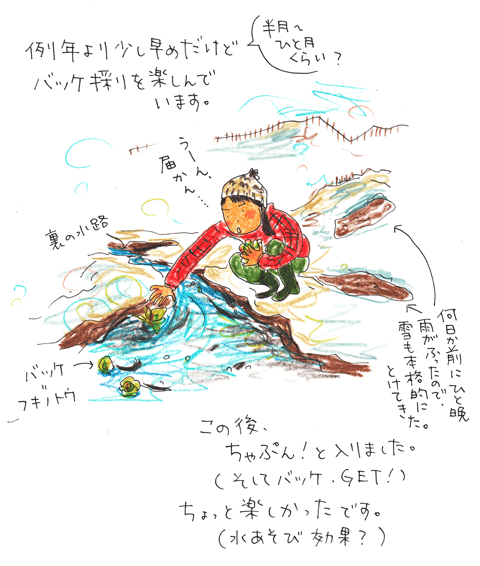 例年より少し早めだけど
バッケ採りを楽しんで
います。
半月〜
ひと月
くらい？
うーん、
届かん…
裏の水路
何日か前にひと晩
雨がふったので、
雪も本格的に
とけてきた。
バッケ
フキノトウ
この後、
ちゃぷん！と入りました。
（そしてバッケ、GET！）
ちょっと楽しかったです。
（水あそび効果？）